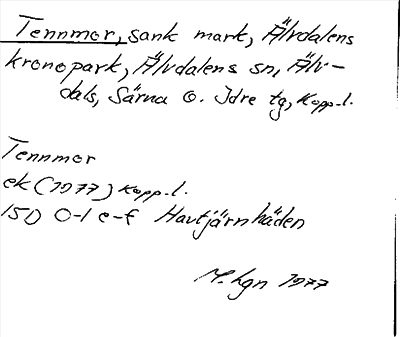 Tennmor, sank mark, Älvdalens
kronopark, Älvdalens sn, Älv-
dals, Särna o. Idre tg, Kopp.l.
Tennmor
ek (1977) Kopp.l.
15D 0-1 e-f Havtjärnhäden
M. Lgn 1977